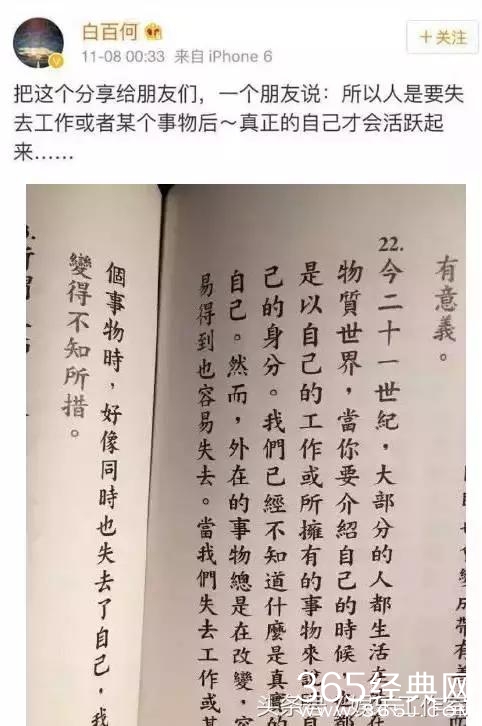 白百何
11-08 00:33 来自 iPhone 6
+关注
把这个分享给朋友们，一个朋友说：所以人是要失
去工作或者某个事物后～真正的自己才会活跃起
来……
有意義。
22.
今二十一世紀，大部分的人都生活在
物質世界，當你要介紹自己的時候，
是以自己的工作或所擁有的事物來說
己的身分。我們已經不知道什麼是真實的
自己。然而，外在的事物總是在改變，容
易得到也容易失去。當我們失去工作或某
個事物時，好像同時也失去了自己，我
變得不知所措。
365经典网